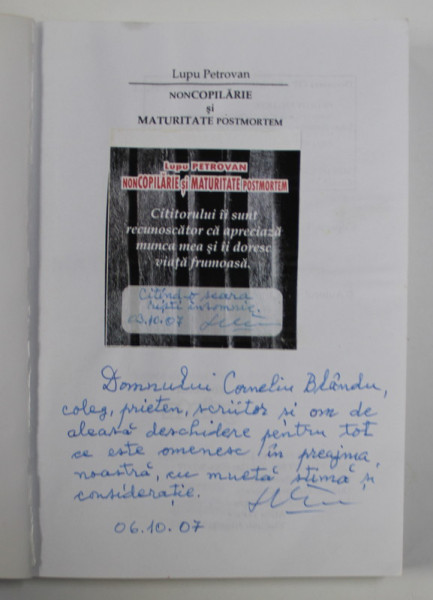 Lupu Petrovan
NONCOPILĂRIE
și
MATURITATE POSTMORTEM
Lupu PETROVAN
NONCOPILĂRIE și MATURITATE POSTMORTEM
Cititorului îi sunt
recunoscător că apreciază
munca mea și îi doresc
viață frumoasă.
Citind-o seara
insomnie.
03.10.07
Domnului Corneliu Blându,
coleg, prieten, scriitor și om de
aleasă deschidere pentru tot
ce este omenesc în preajma
noastră, cu multă stimă și
considerație.
06.10.07